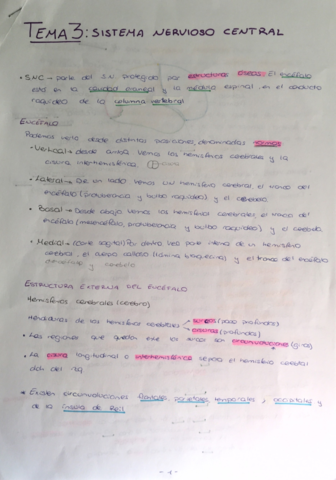 TEMA 3: SISTEMA NERVIOSO CENTRAL
• SNC → parte del S.N. protegido por estructuras óseas. El encéfalo
está en la cavidad craneal y la médula espinal, en el conducto
raquídeo de la columna vertebral.
ENCÉFALO
Podemos verlo desde distintas posiciones, denominadas
• Vertical → desde arriba. Vemos los hemisferios cerebrales y la
cisura interhemisférica.
• Lateral → De un lado vemos un hemisferio cerebral, el tronco del
encéfalo (protuberancia y bulbo raquídeo) y el cerebelo.
• Basal → Desde abajo vemos los hemisferios cerebrales, el tronco del
encéfalo (mesencéfalo, protuberancia y bulbo raquídeo) y el cerebelo.
• Medial → (corte sagital) vemos parte interna de un hemisferio
cerebral, el cuerpo calloso (lámina blanquecina) y el tronco del encéfalo
y cerebelo
ESTRUCTURA EXTERNA DEL ENCÉFALO
Hemisferios cerebrales (cerebro)
Hendiduras de los hemisferios cerebrales surcos (poco profundos)
cisuras (profundas)
• Las regiones que quedan entre los surcos son circunvoluciones (giros)
• La cisura longitudinal o interhemisférica separa el hemisferio cerebral
dch. del izq.
* Existen circunvoluciones frontales, parietales, temporales, occipitales y
de la
- 1 -